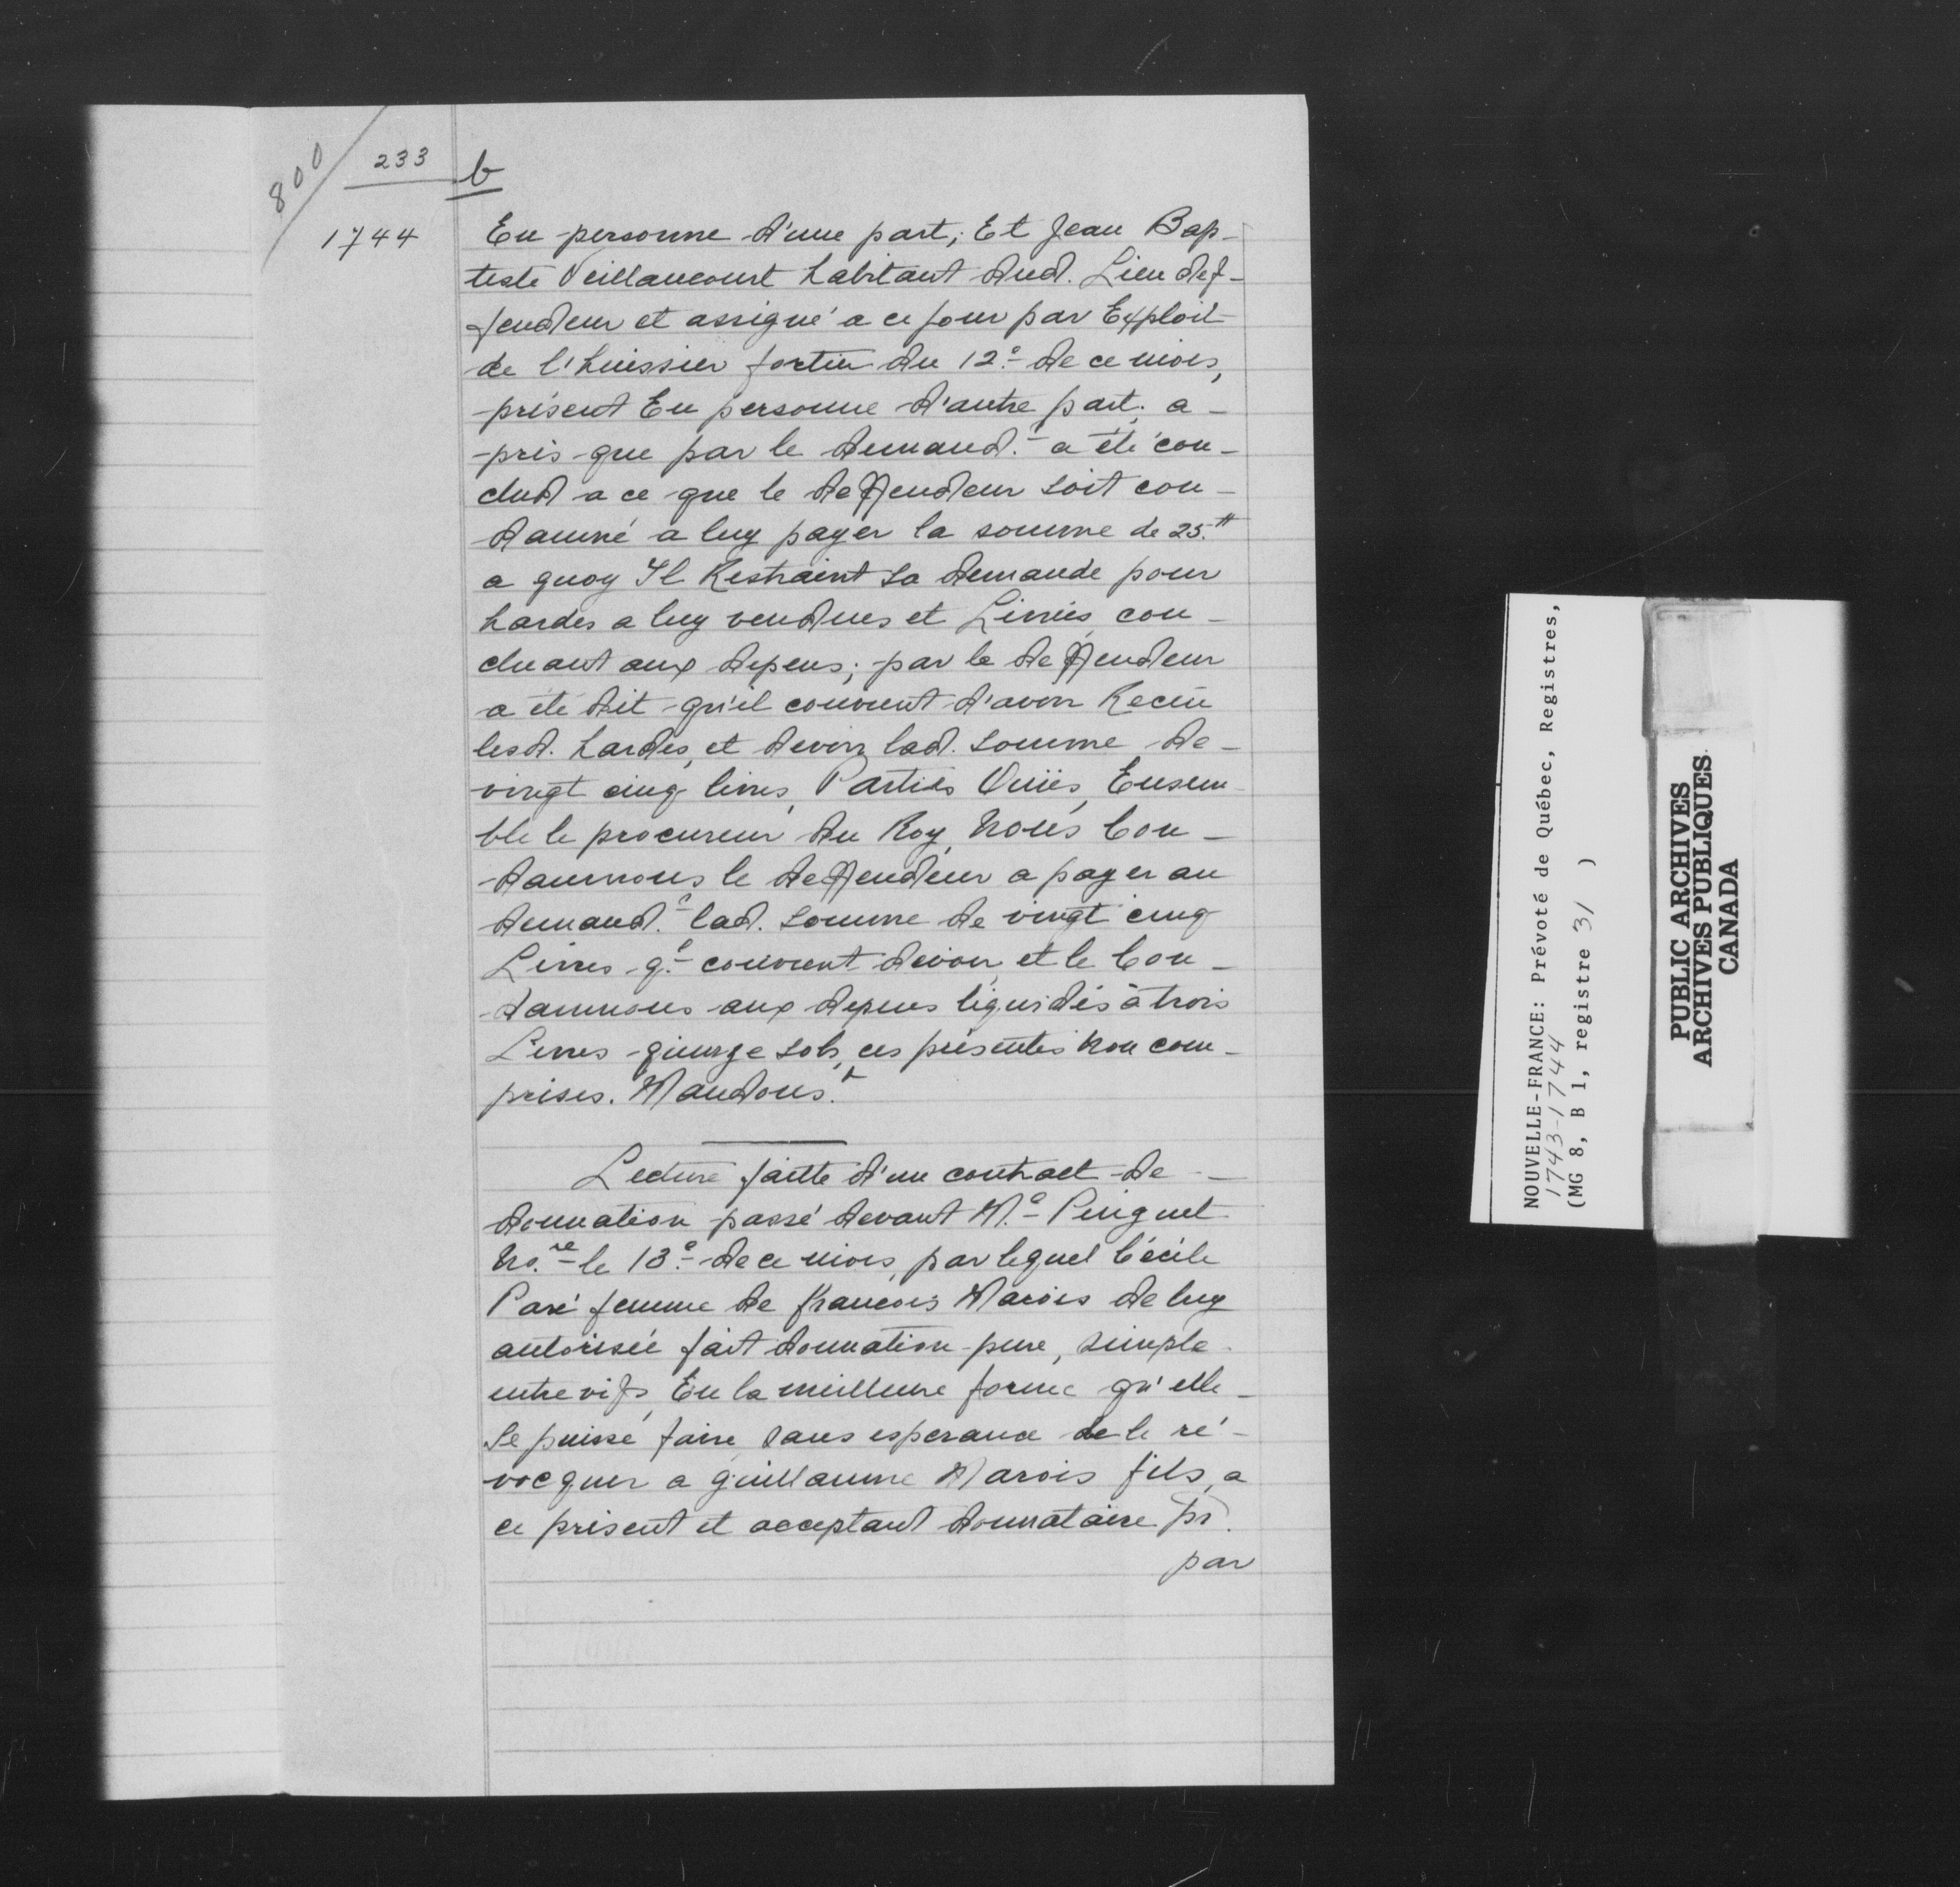 800
233 b
1744
En personne d'une part; Et Jean Bap-
teste Veillancourt habitant dud. Lieu def-
fendeur et assigné a ce jour par Exploit
de l'huissier fortier du 12.e de ce mois,
présent En personne d'autre part; a-
près que par le demand.r a été con-
clud a ce que le deffendeur soit con-
damné a luy payer la somme de 25.tt
a quoy Il Restraint sa demande pour
hardes a luy vendues et Livrées, con-
cluant aux depens; par le deffendeur
a été dit qu'il convient d'avoir Receu
lesd. hardes, et devoir lad. somme de-
vingt cinq livres, Parties Ouiés, Ensem-
ble le procureur du Roy, Nous Con-
damnons le deffendeur a payer au
demand.r lad. somme de vingt cinq
Livres q.l convient devoir, et le Con-
damnons aux depens liquidés à trois
Livres quinze sols, ces présentes non com-
prises. Mandons.t
Lecture faitte d'un contract de-
donnation passé devant M.e Pinguet
No.re le 13.e de ce mois, par lequel Cécile
Paré femme de francois Marois de luy
autorisée fait donnation pure, simple-
entre vifs, En la meilleure forme qu'elle-
Se puisse faire, sans esperance de le ré-
vocquer a guillaume Marois fils, a
ce présent et acceptant donnataire pr.
par
NOUVELLE-FRANCE: Prévoté de Québec, Registres,
1743-1744
(MG 8, B 1, registre 31 )
PUBLIC ARCHIVES
ARCHIVES PUBLIQUES
CANADA